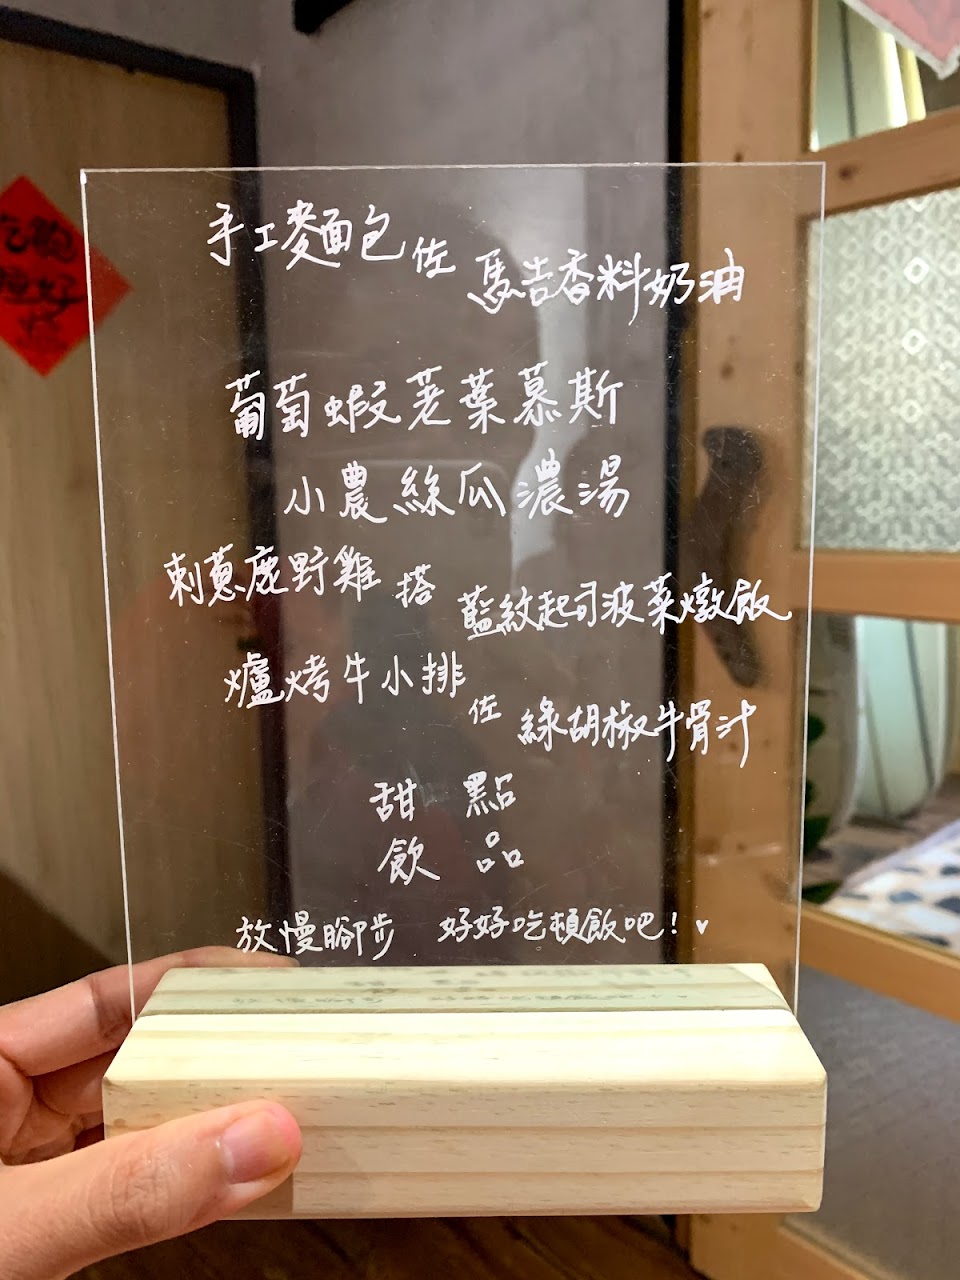 手工麥面包佐馬告香料奶油
葡萄蝦荖葉慕斯
小農絲瓜濃湯
刺蔥鹿野雞搭藍紋起司菠菜燉飯
爐烤牛小排佐綠胡椒牛骨汁
甜點
飲品
放慢腳步 好好吃頓飯吧！